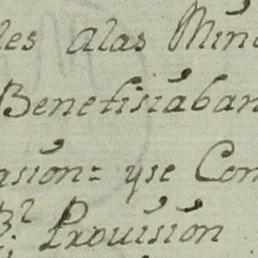 les alas Min
Benefisiaban
asion= yse Con
Prouision